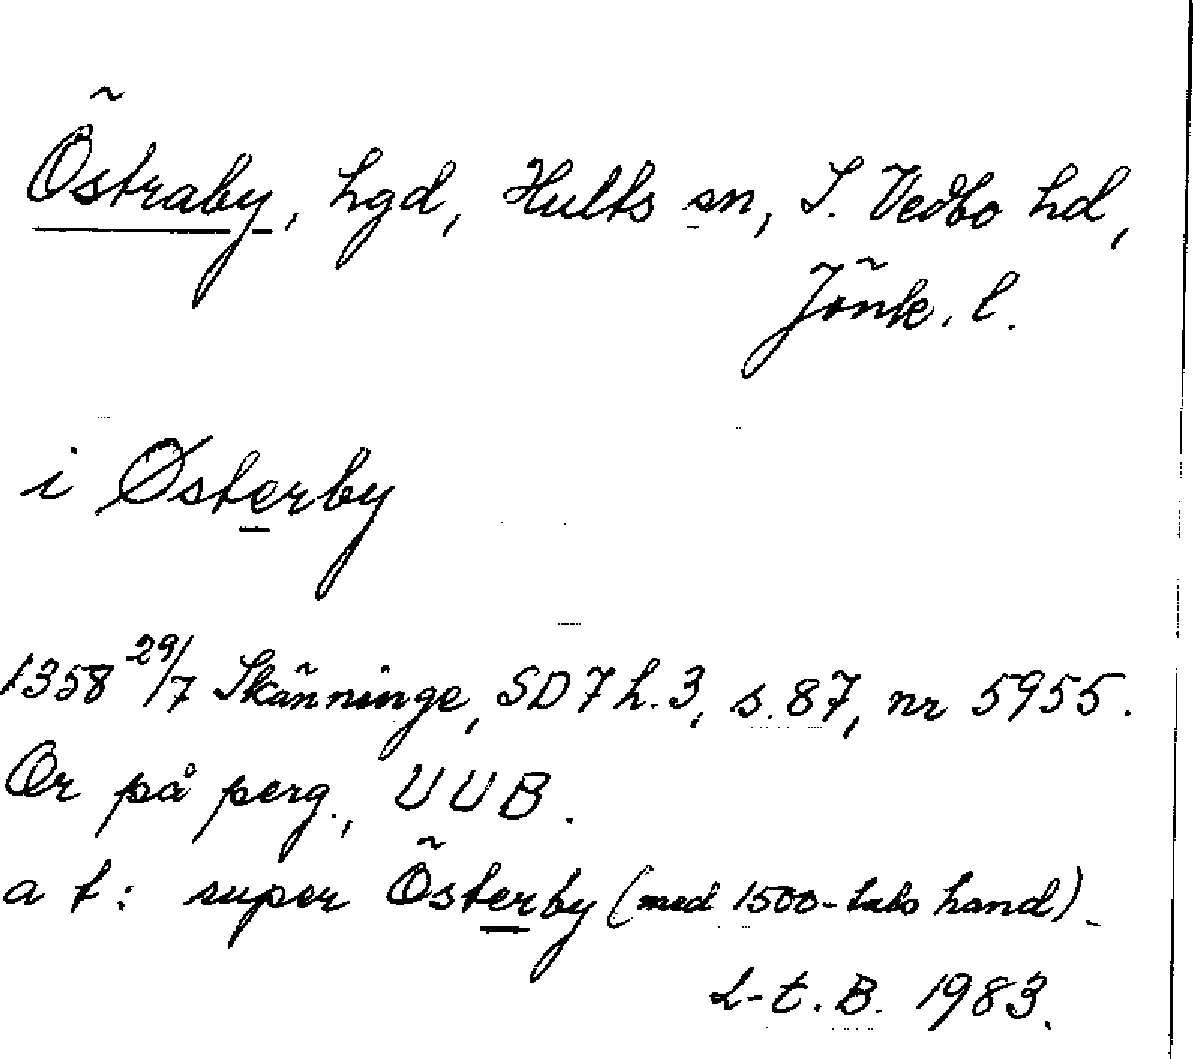 Östraby, hgd, Hults sn, S. Vedbo hd,
Jönk. l.
i Østerby
1358 29/7 Skänninge, SD 7 h. 3, s. 87, nr 5955.
Or på perg., UUB.
a t: super Österby (med 1500-tals hand).
L-t. B. 1983.